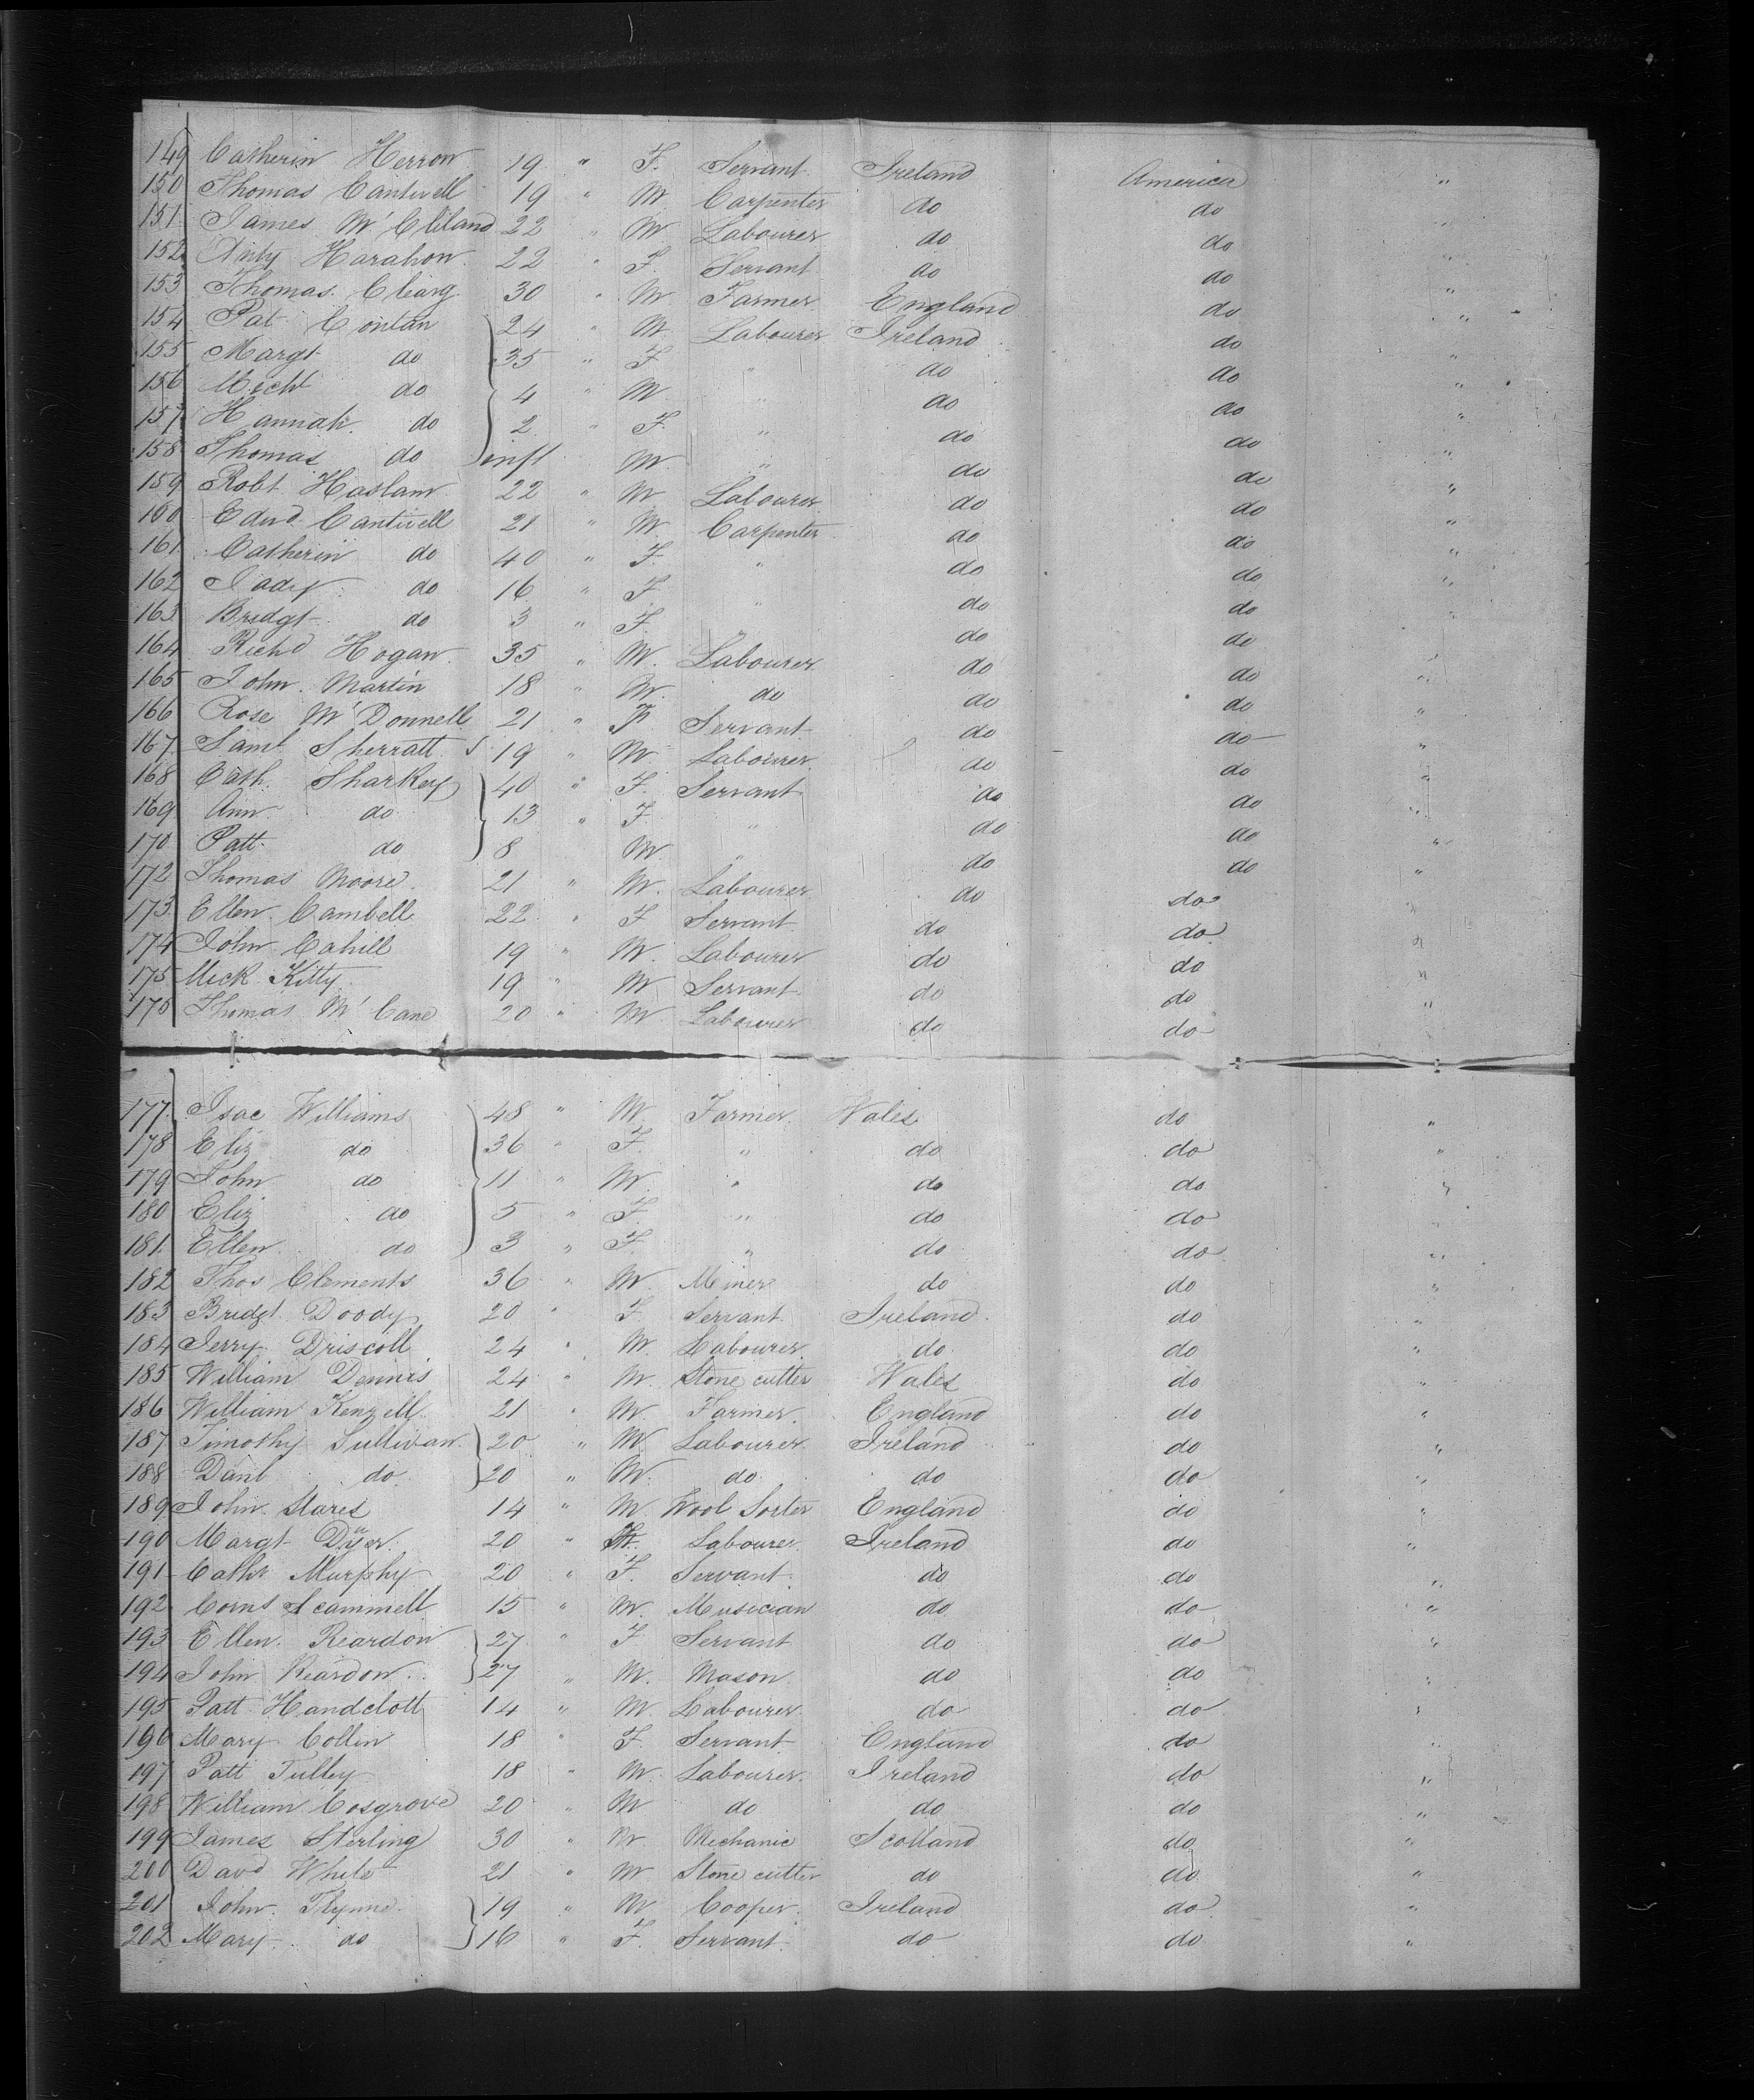 149 Catherin Herron 19 " F. Servant Ireland America "
150 Thomas Cantwell 19 " M Carpenter do do "
151 James Mc Cliland 22 " M Labourer do do "
152 Harahon 22 " F. Servant do do "
153 Thomas Clearg 30 " M Farmer England do "
154 Pat Conlan 24 " M Labourer Ireland do "
155 Margt do 35 " F " do do "
156 Michl do 4 " M " do do "
157 Hannah do 2 " F. " do do "
158 Thomas do inft M " do do "
159 Robt Haslam 22 " M Labourer do do "
160 Edwd Cantwell 21 " M. Carpenter do do "
161 Catherin do 40 " F. " do do "
162 do 16 " F " do do "
163 Bridgt do 3 " F. " do do "
164 Richd Hogan 35 " M. Labourer do do "
165 John Martin 18 " M. do do do "
166 Rose Mc Donnell 21 " F Servant do do "
167 Saml Sherratt 19 " M Labourer do do "
168 Cath. Sharkey 40 " F. Servant do do "
169 Ann do 13 " F. " do do "
170 Patt do 8 M. " do do "
172 Thomas Moore 21 " M. Labourer do do "
173 Ellen Cambell 22 " F Servant do do "
174 John Cahill 19 " M. Labourer do do "
175 Mick Kitty 19 " M Servant do do "
176 Thomas Mc Cane 20 " M Labourer do do
177 Isac Williams 48 " M Farmer Wales do "
178 Eliz do 36 " F. " do do "
179 John do 11 " M. " do do "
180 Eliz do 5 " F. " do do "
181 Ellen do 3 " F. " do do "
182 Thos Clements 36 " M. Miner do do "
183 Bridgt Doody 20 " F. Servant Ireland do "
184 Jerry Driscoll 24 " M. Labourer do do "
185 William Dennis 24 " M. Stone cutter Wales do "
186 William Kenzell 21 " M. Farmer England do "
187 Timothy Sullivan 20 " M Labourer Ireland do "
188 Danl do 20 " M. do do do "
189 John Stares 14 " M. Wool Sorter England do "
190 Margt Dyer 20 " F. Labourer Ireland do "
191 Cathr Murphy 20 " F. Servant do do "
192 Corns Scammell 15 " M. Musician do do "
193 Ellen Reardon 27 " F Servant do do "
194 John Reardon 27 " M. Mason do do "
195 Patt Handclott 14 " M Labourer do do "
196 Mary Collin 18 " F. Servant England do "
197 Patt Tulley 18 " M. Labourer Ireland do "
198 William Cosgrove 20 " M do do do "
199 James Sterling 30 " M Mechanic Scotland do "
200 Davd White 21 " M Stone cutter do do "
201 John Flynne 19 " M Cooper Ireland do "
202 Mary do 16 " F. Servant do do "